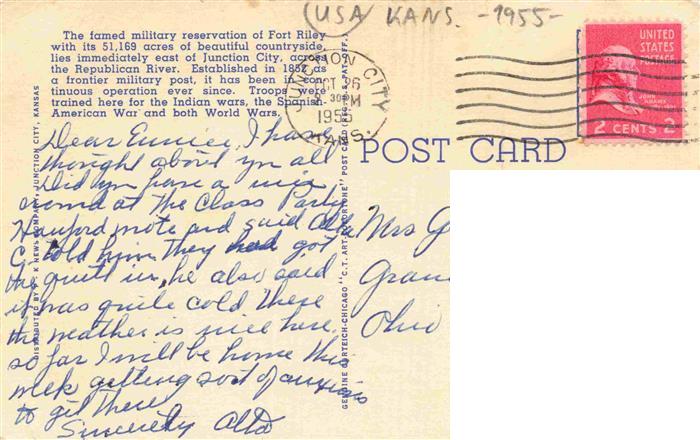 (USA) KANS. -1955-
The famed military reservation of Fort Riley
with its 51,169 acres of beautiful countryside,
lies immediately east of Junction City, across
the Republican River. Established in 1852 as
a frontier military post, it has been in con-
tinuous operation ever since. Troops were
trained here for the Indian wars, the Spanish
American War and both World Wars.
JUNCTION CITY
OCT 26
PM
1955
KANS.
UNITED
STATES
POSTAGE
JOHN
ADAMS
2 CENTS 2
POST CARD
Dear Eunice, I have
thought about you all
Did you have a nice
at the Class Party
Hanford wrote and said
C. told him they had got
the quilt in, he also said
it was quite cold there
the weather is nice here.
so far I will be home this
week getting sort of anxious
to get there
Sincerely Alta
Mrs G
Gran
Ohio
DISTRIBUTED BY K NEWS COMPANY, JUNCTION CITY, KANSAS
GENUINE CURTEICH-CHICAGO "C.T. ART-COLORTONE" POST CARD (REG. U.S. PAT. OFF.)